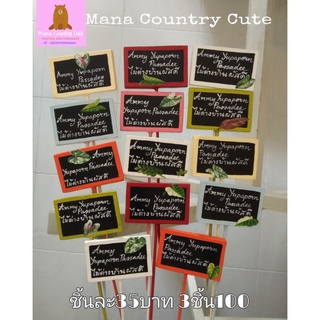 Mana Country Cute
Mana Country Cute
Ammy Yupaporn
Passadee
ไม้ด่างบ้านผัสดี
Ammy Yupaporn
Passadee
ไม้ด่างบ้านผัสดี
Ammy Yupaporn
Passadee
ไม้ด่างบ้านผัสดี
Ammy
Yupaporn
Passadee
ไม้ด่างบ้านผัสดี
Ammy
Yupaporn Passadee
ไม้ด่างบ้านผัสดี
Ammy Yupaporn
Passadee
ไม้ด่างบ้านผัสดี
Ammy
Yupaporn Passadee
ไม้ด่างบ้านผัสดี
Ammy Yupaporn
Passadee
ไม้ด่างบ้านผัสดี
Ammy Yupaporn
Passadee
ไม้ด่างบ้านผัสดี
Ammy Yupaporn
Passadee
ไม้ด่างบ้านผัสดี
Ammy Yupaporn
Passadee
ไม้ด่างบ้านผัสดี
Ammy
Yupaporn Passadee
ไม้ด่างบ้านผัสดี
Ammy Yupaporn
Passadee
ไม้ด่างบ้านผัสดี
ชิ้นละ35บาท 3ชิ้น100